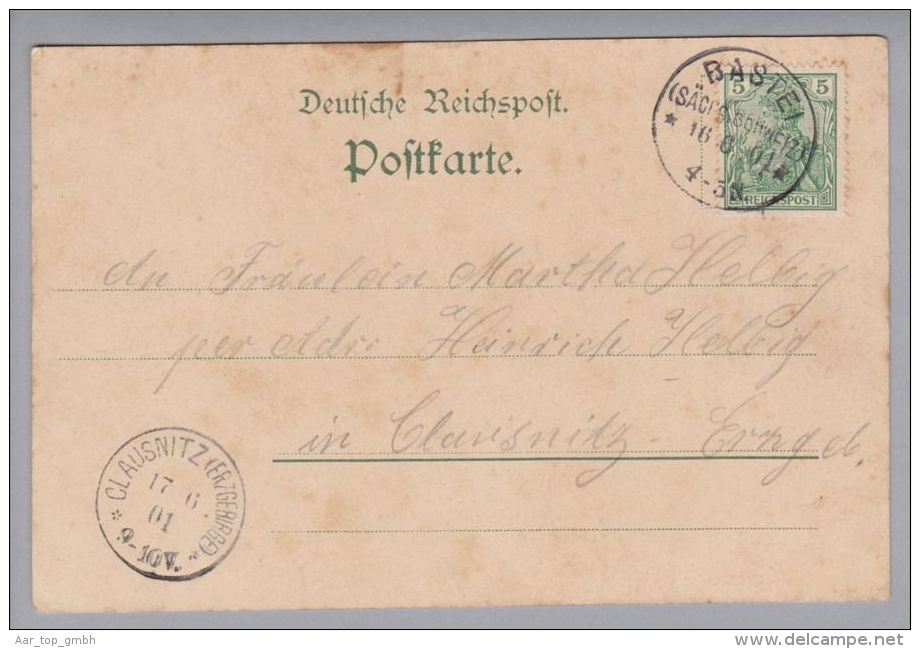 Deutsche Reichspost.
Postkarte.
BASTEI
(SÄCHS. SCHWEIZ)
16 6 01
4-5N.
5 5
REICHSPOST
An Fräulein Martha Helbig
per Adr: Heinrich Helbig
in Clausnitz Erzgeb.
CLAUSNITZ (ERZGEBIRGE)
17 6.
01
9-10V.
Aar_top_gmbh
www.delcampe.net